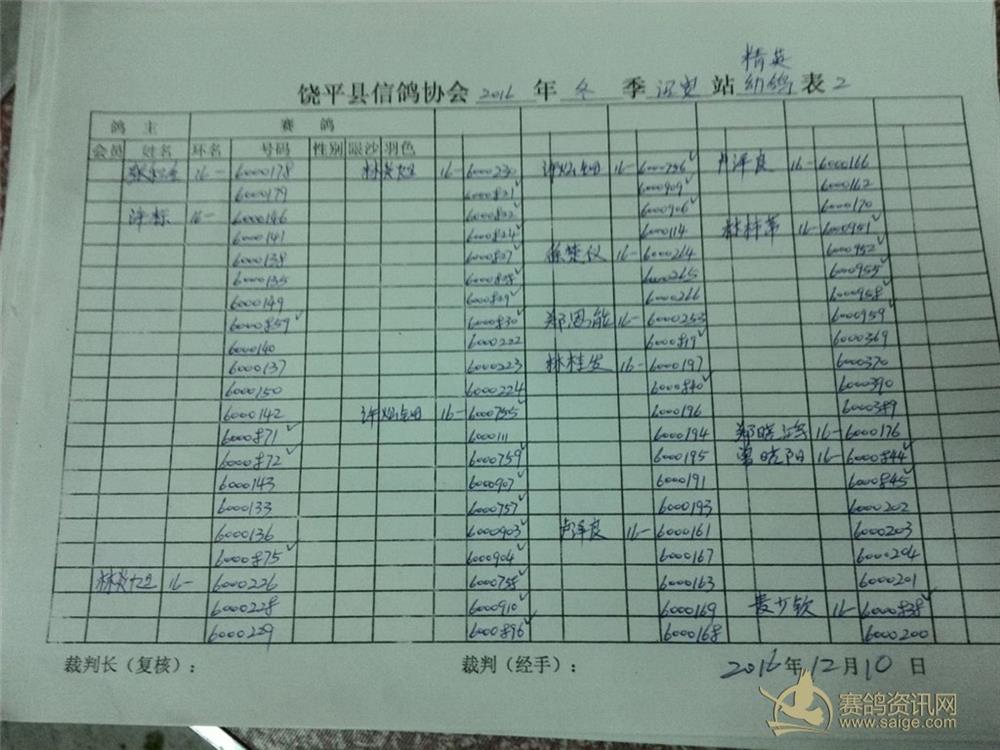 精英
饶平县信鸽协会 2016 年 冬 季 站 幼鸽 表 2
鸽 主 赛 鸽
会员 姓名 环名 号码 性别 眼沙 羽色
16- 6000178 16- 6000230 16- 6000756✓ 卢泽良 16- 6000166
6000179 6000821✓ 6000909✓ 6000162
许标 16- 6000146 6000822✓ 6000906✓ 6000170
6000141 6000824✓ 6000114 16- 6000951✓
6000138 6000827✓ 徐楚仪 16- 6000264 6000952✓
6000135 6000828✓ 6000265 6000955✓
6000149 6000829✓ 6000266 6000958✓
6000859✓ 6000830✓ 郑恩能 16- 6000253 6000959✓
6000140 6000222 6000819✓ 6000369
6000137 6000223 林桂发 16- 6000197 6000370
6000150 6000224 6000840✓ 6000390
6000142 16- 6000755✓ 6000196 6000389
6000871✓ 6000111 6000194 16- 6000176
6000872✓ 6000759✓ 6000195 曾晓阳 16- 6000844✓
6000143 6000907✓ 6000191 6000845✓
6000133 6000757✓ 6000193 6000202
6000136 6000903✓ 卢泽良 16- 6000161 6000203
6000875✓ 6000904✓ 6000167 6000204
16- 6000226 6000758✓ 6000163 6000201
6000228 6000910✓ 6000169 黄少钦 16- 6000838✓
6000229 6000896✓ 6000168 6000200
裁判长（复核）： 裁判（经手）： 2016年12月10日
赛鸽资讯网
www.saige.com